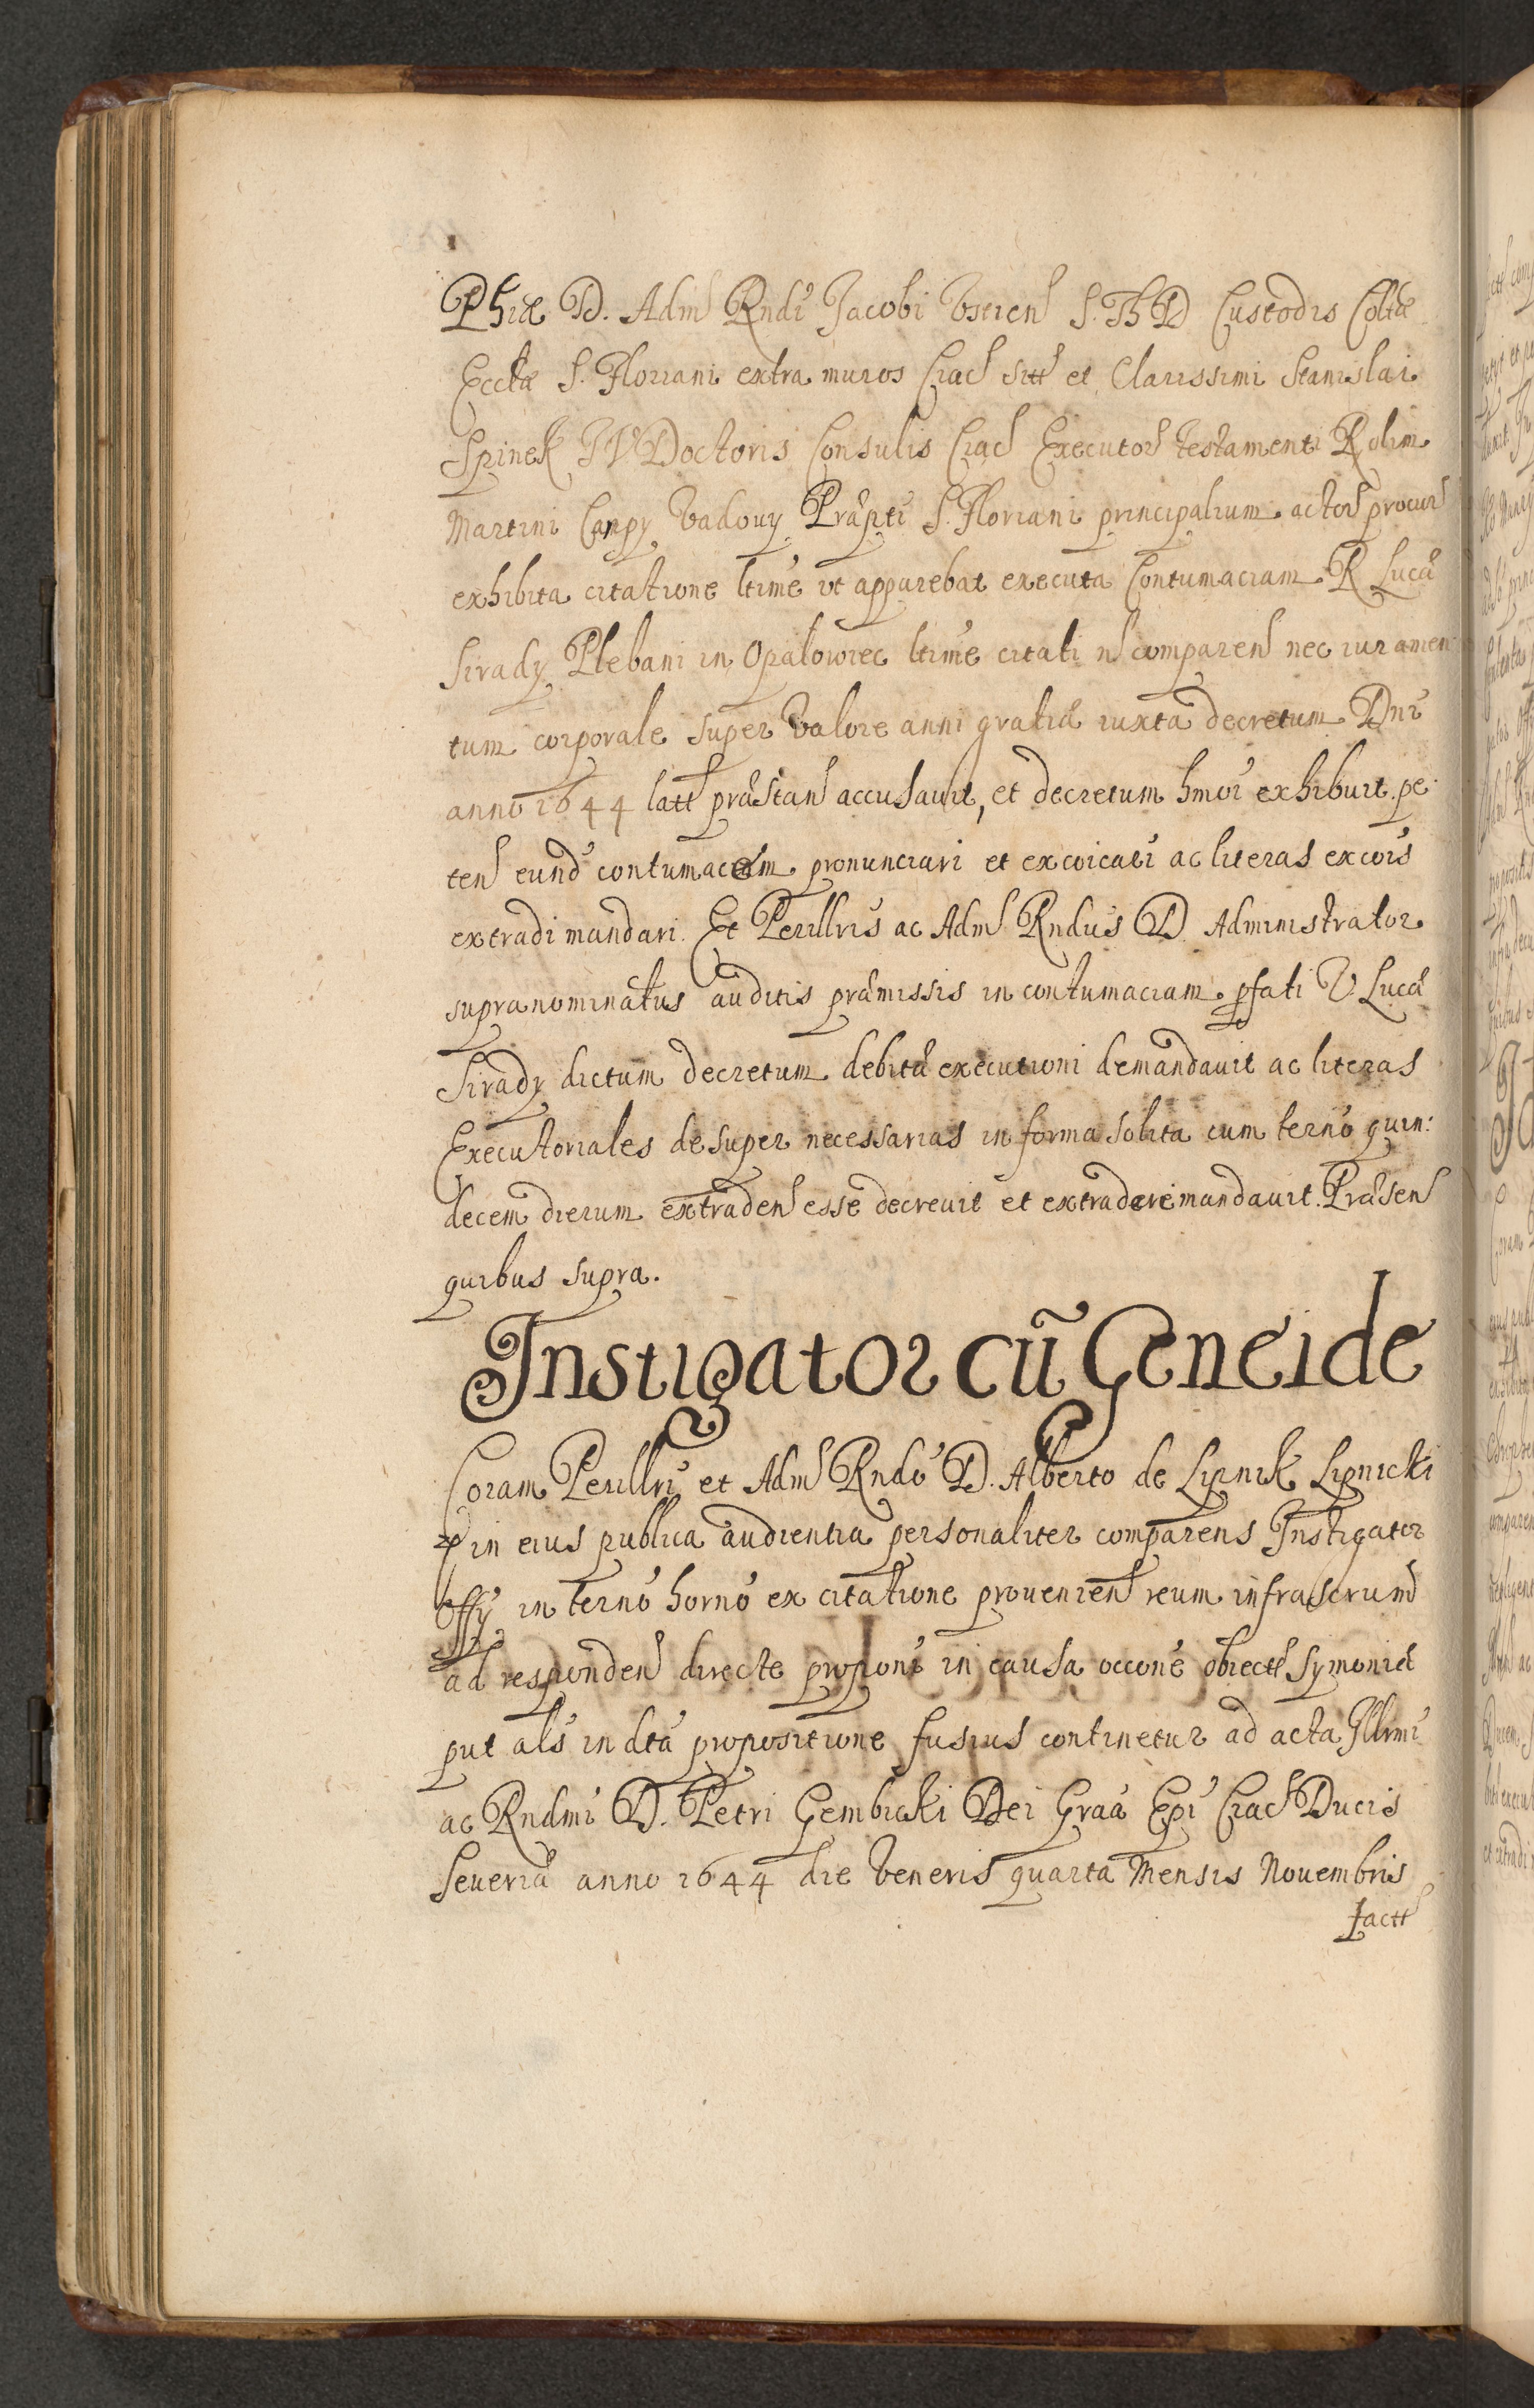 Phiæ D. Adm Rndi Jacobi Vstien S. Th D Custodis Coltæ
Ecctæ S. Floriani extra muros Crac sitt et Clarissimi Stanislai
Spinek JVDoctoris Consulis Crac Executor testamenti R olim
Martini Campy Vadouy Præpti S. Floriani principalium actor procur
exhibita citatione ltime vt apparebat executa Contumaciam R Lucæ
Sirady Plebani in Opatowiec ltime citati n comparen nec iuramen
tum corporale super valore anni gratiæ iuxta decretum Dni
anno 1644 latt præstan accusauit, et decretum hmoi exhibuit pe
ten eund contumacem pronunciari et excoicari ac literas excois
extradi mandari. Et Perillris ac Adm Rndus D. Administrator
supranominatus auditis præmissis in contumaciam pfati V. Lucæ
Sirady dictum decretum debitæ executioni demandauit ac literas
Executoriales desuper necessarias in forma solita cum terno quin:
decem dierum extraden esse decreuit et extradere mandauit. Præsen
quibus supra.
Instigator cũ Geneide
Coram Perillri et Adm Rndo D. Alberto de Lipnik Lipnicki
in eius publica audientia personaliter comparens Instigator
Offy in terno horno ex citatione prouenien reum infrascrund
ad responden directe proponi in causa occone obiectt symoniæ
put als in dta propositione fusius continetur ad acta Illrmi
ac Rndmi D. Petri Gembicki Dei Graa Epi Crac Ducis
Seueriæ anno 1644 die Veneris quarta Mensis Nouembris
factt